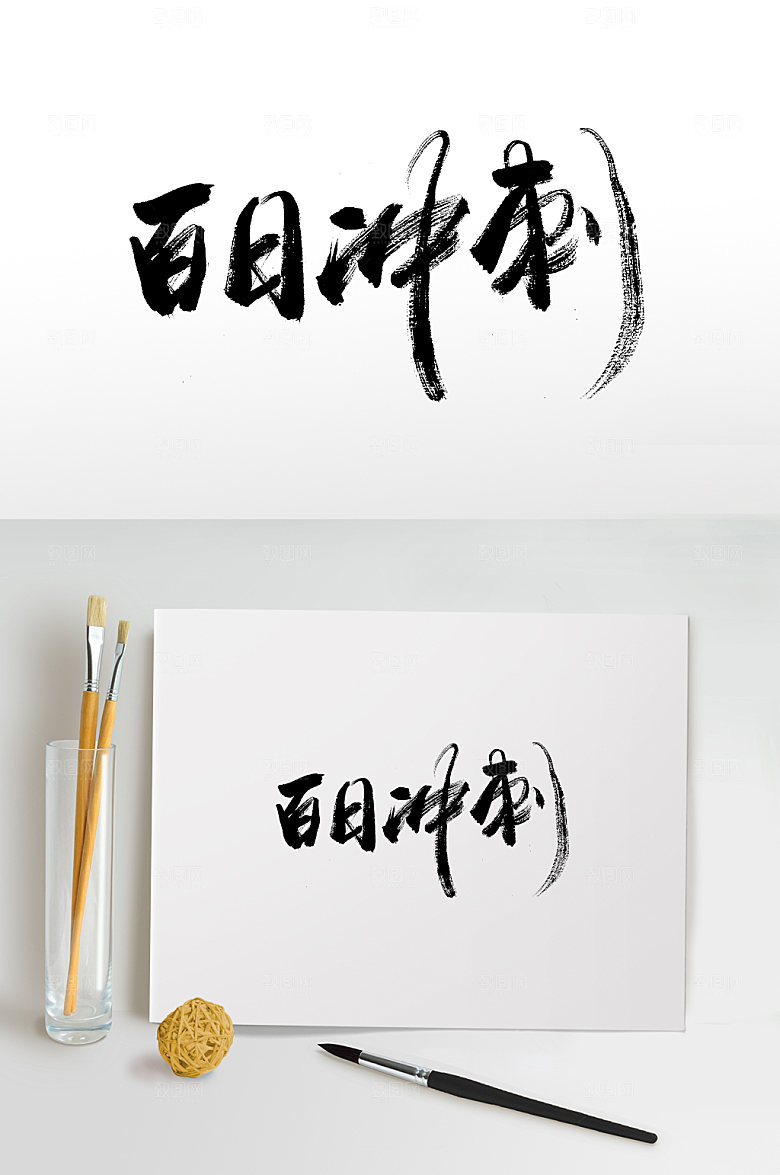 百日冲刺
百日冲刺